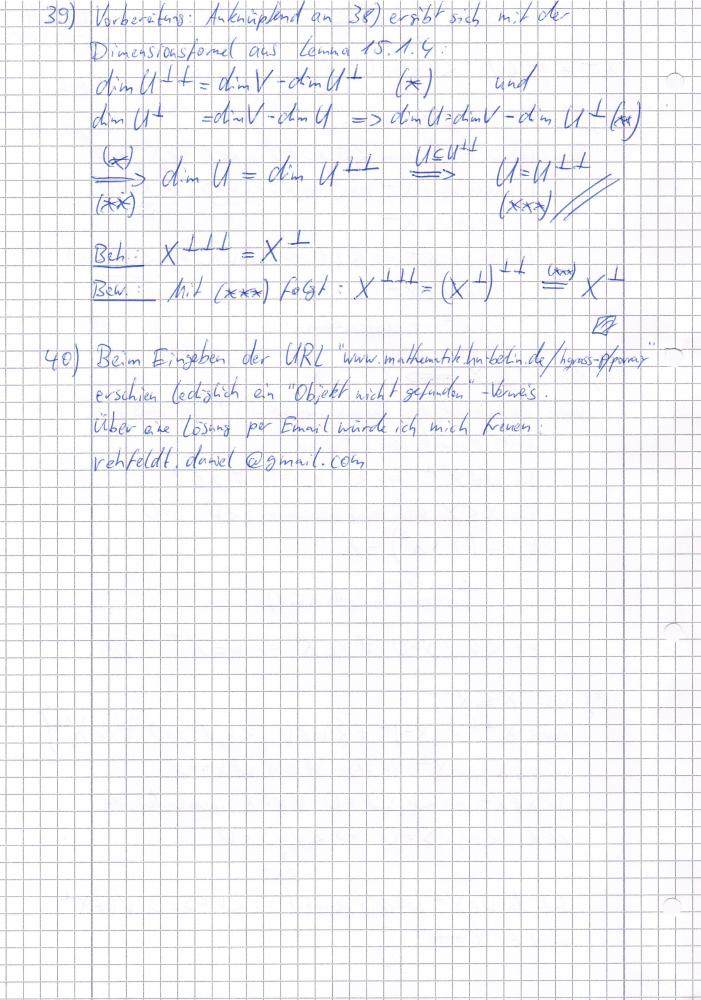 39) Vorbereitung: Anknüpfend an 38) ergibt sich mit der
Dimensionsformel aus Lemma 15.1.4:
dim U⊥⊥ = dim V - dim U⊥ (*) und
dim U⊥ = dim V - dim U => dim U = dim V - dim U⊥ (**)
(*) ⟹ (**) dim U = dim U⊥⊥ U⊆U⊥⊥ ⟹ U = U⊥⊥
(***)
Beh.: X⊥⊥⊥ = X⊥
Bew.: Mit (***) folgt: X⊥⊥⊥ = (X⊥)⊥⊥ (***) = X⊥
40) Beim Eingeben der URL "www.mathematik.hu-berlin.de/
erschien lediglich ein "Objekt nicht gefunden"-Verweis.
Über eine Lösung per Email würde ich mich freuen:
rehfeldt.daniel@gmail.com